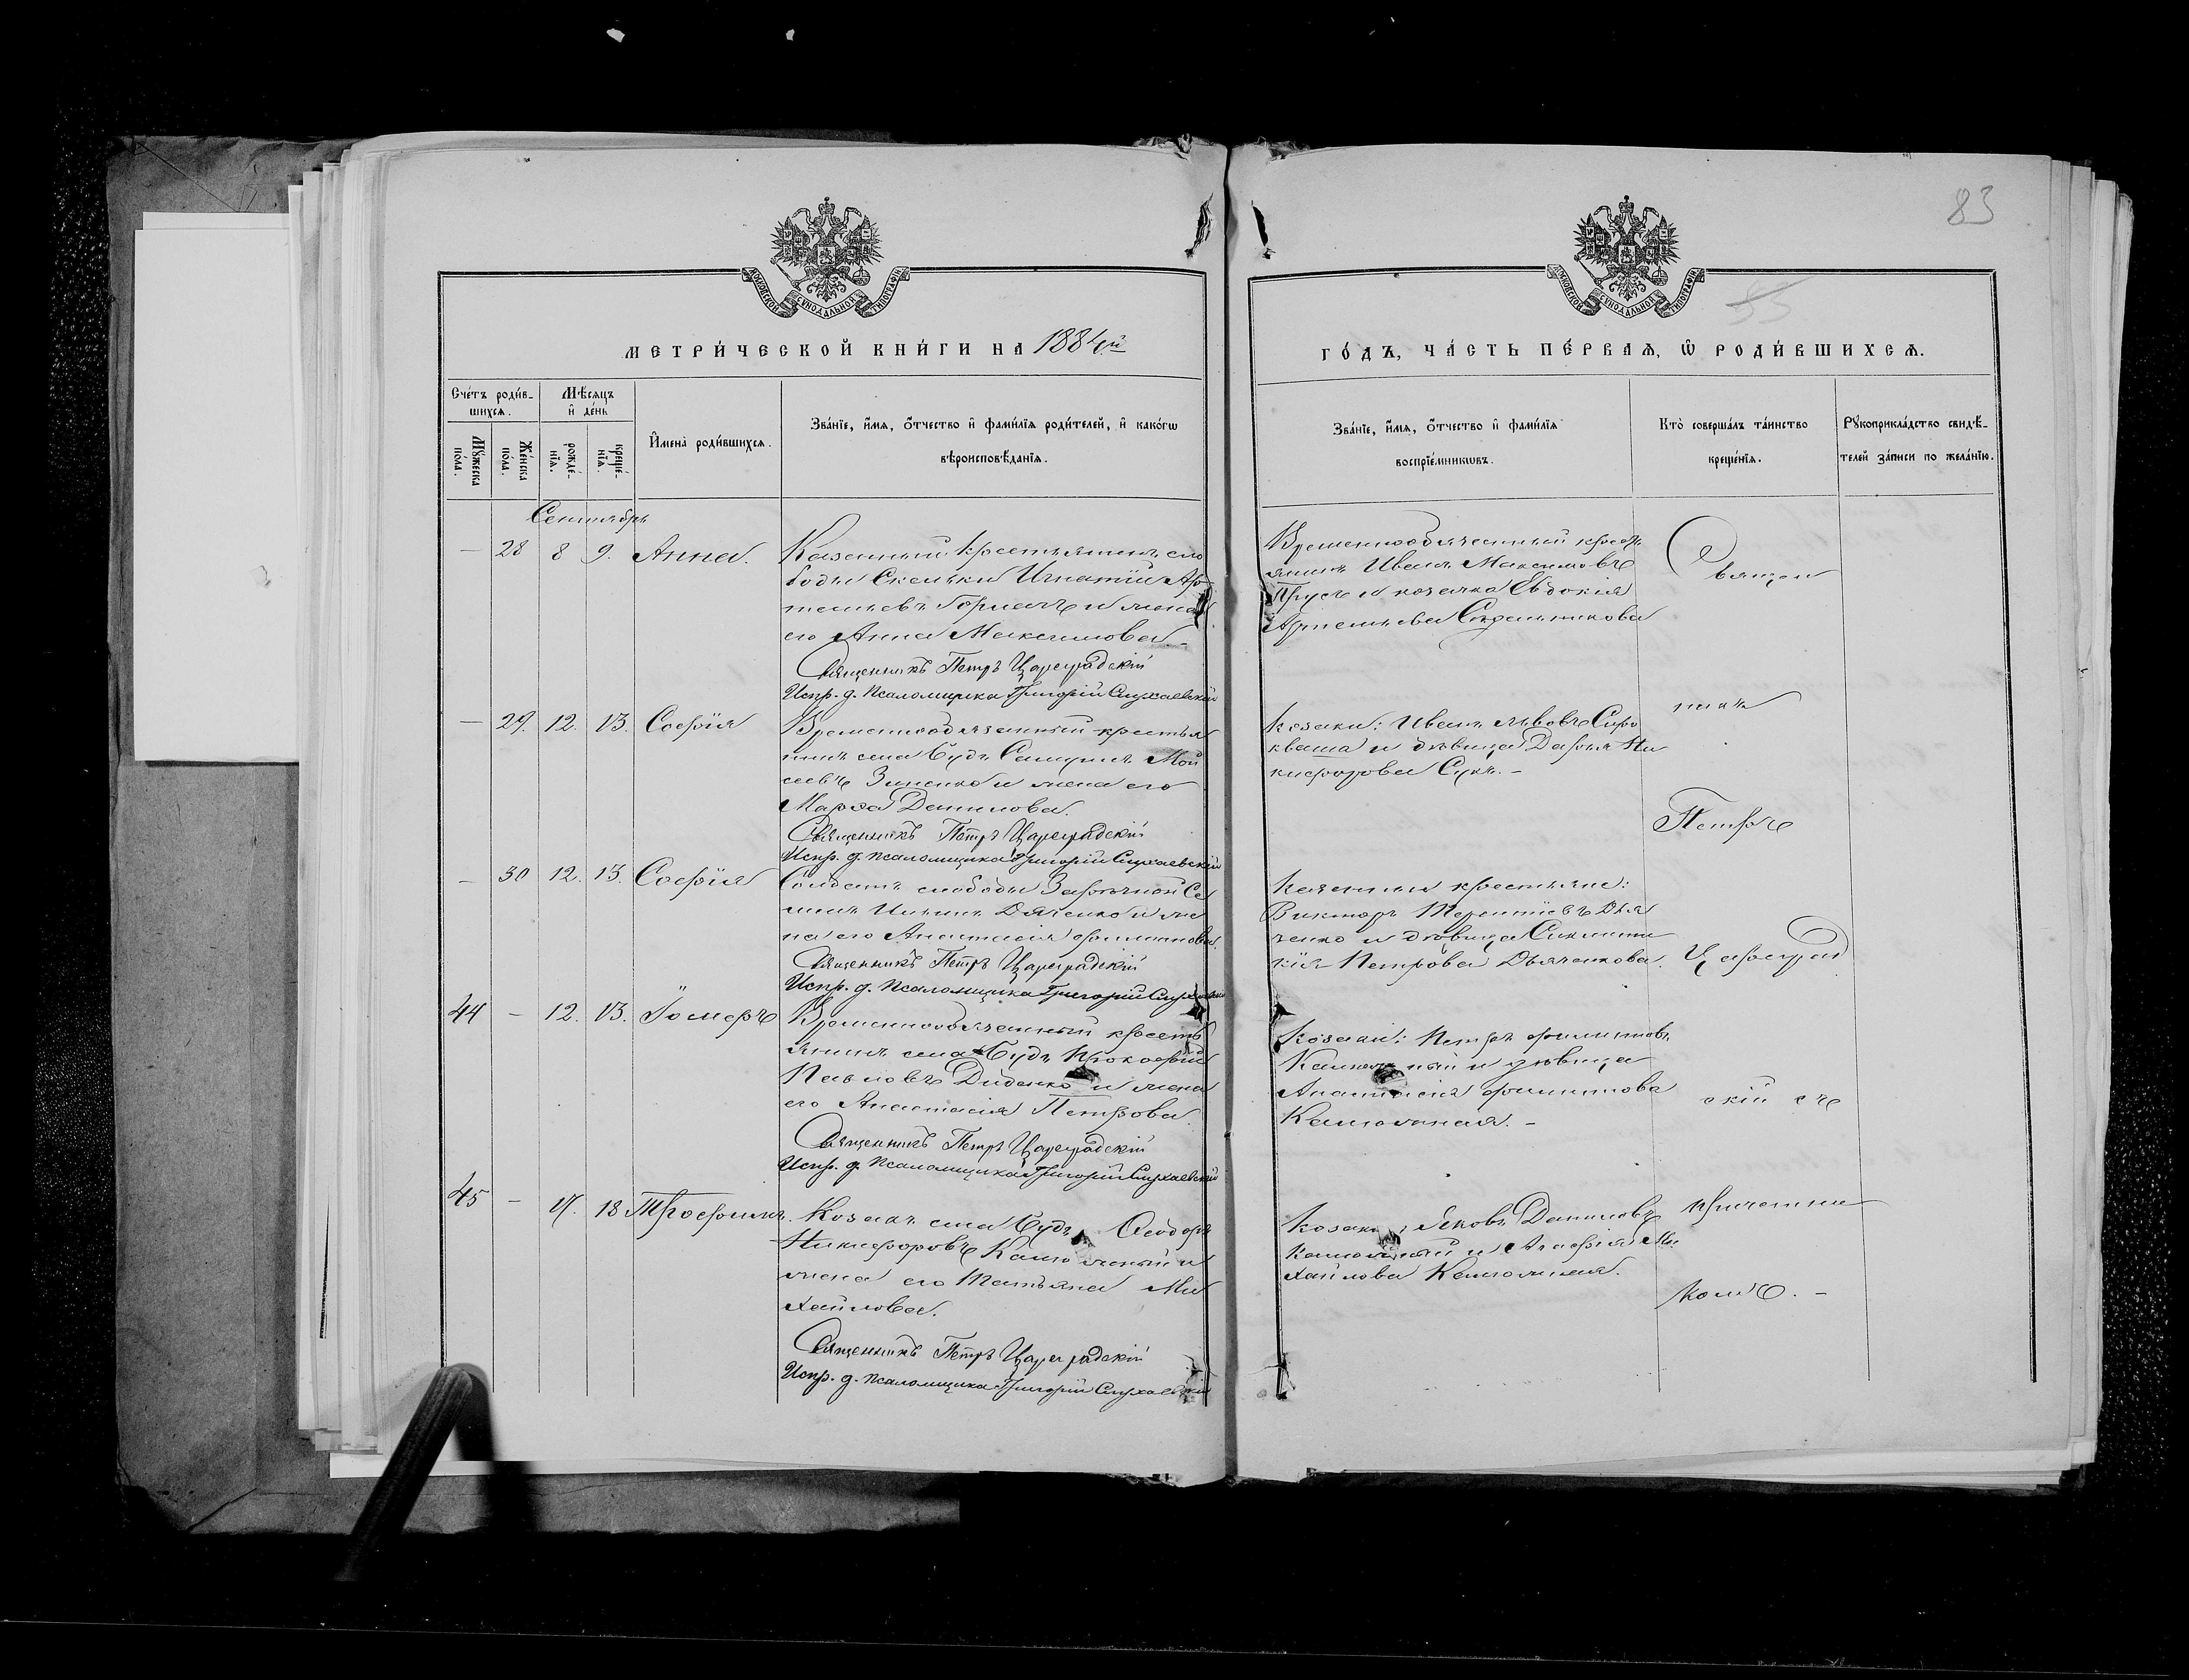 83
55
МОСКОВСКОЙ СѴНОДАЛЬНОЙ ТИПОГРАФІИ
МОСКОВСКОЙ СѴНОДАЛЬНОЙ ТИПОГРАФІИ
МЕТРИ́ЧЕСКОЙ КНИ́ГИ НА 1884й
ГО́ДЪ, ЧА́СТЬ ПЕ́РВАѦ, Ѽ РОДИ́ВШИХСѦ.
Сче́тъ роди́в-
шихсѧ.
Мѣ́сѧцъ
и҆ де́нь
Мꙋ́жеска по́ла.
Же́нска по́ла.
рожде́-нїѧ.
креще́-нїѧ.
И҆мена̀ роди́вшихсѧ.
Зва́нїе, и҆́мѧ, ѻ҆́тчество и҆ фами́лїѧ роди́телей, и҆ како́гѡ
вѣроисповѣ́данїѧ.
Зва́нїе, и҆́мѧ, ѻ҆́тчество и҆ фами́лїѧ
воспрїе́мникѡвъ.
Кто̀ соверша́лъ та́инство
креще́нїѧ.
Рꙋкоприкла́дство свидѣ́-
телей за́писи по жела́нїю.
Сентябрь
— 28 8 9. Анна.
Казенный крестьянинъ сло
боды Скельки Игнатій Ар
темьевъ Горкачъ и жена
его Анна Максимова.
Священникъ Петръ Цареградскій
Испр. д. псаломщика Григорій Слухаевскій
Временнообязанный кресть
янинъ Иванъ Максимовъ
Прусъ и козачка Евдокія
Артемьева Стрельникова
— 29. 12. 13. Софія
Временнообязанный крестья
нинъ села Будъ Самуилъ Мои
сеевъ Зиненко и жена его
Марѳа Данилова.
Священникъ Петръ Цареградскій
Испр. д. псаломщика Григорій Слухаевскій
Козаки: Иванъ Львовъ Сиро
кваша и дѣвица Дарья Ни
кифорова Сукъ. -
— 30 12. 13. Софія
Солдатъ слободы Зарѣчной Се
менъ Ильинъ Дяченко и же
на его Анастасія Филиппова.
Священникъ Петръ Цареградскій
Испр. д. псаломщика Григорій Слухаевскій
Казенные крестьяне:
Викторъ Терентіевъ Дья
ченко и дѣвица Синклити
кія Петрова Дьяченкова.
44 — 12. 13. Гомеръ
Временнообязанный кресть
янинъ села Будъ Прокофій
Павловъ Диденко и жена
его Анастасія Петрова
Священникъ Петръ Цареградскій
Испр. д. псаломщика Григорій Слухаевскій
Козаки: Петръ Филипповъ
и дѣвица
Анастасія Филиппова
45 — 17. 18 Трофимъ.
Козакъ села Будъ Ѳеодоръ
Никифоровъ и
жена его Татьяна Ми
хайлова.
Священникъ Петръ Цареградскій
Испр. д. псаломщика Григорій Слухаевскій
Козаки: Яковъ Даниловъ
и Агафія Ми
хайлова
Священ
никъ
Петръ
Цареград
скій съ
причетни
комъ. -